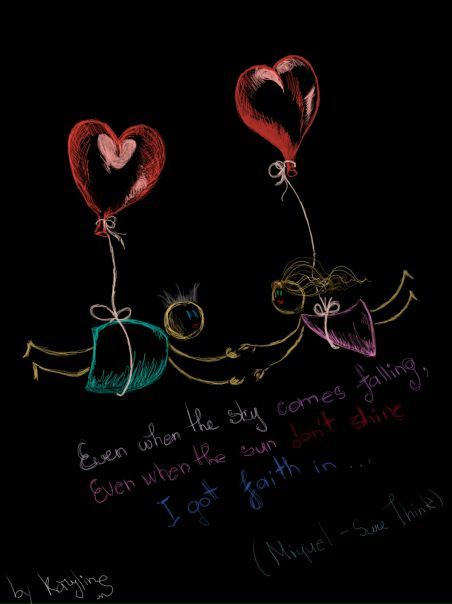 Even when the sky comes falling,
Even when the sun don't shine
I got faith in ...
(Miguel - Sure Thing)
by